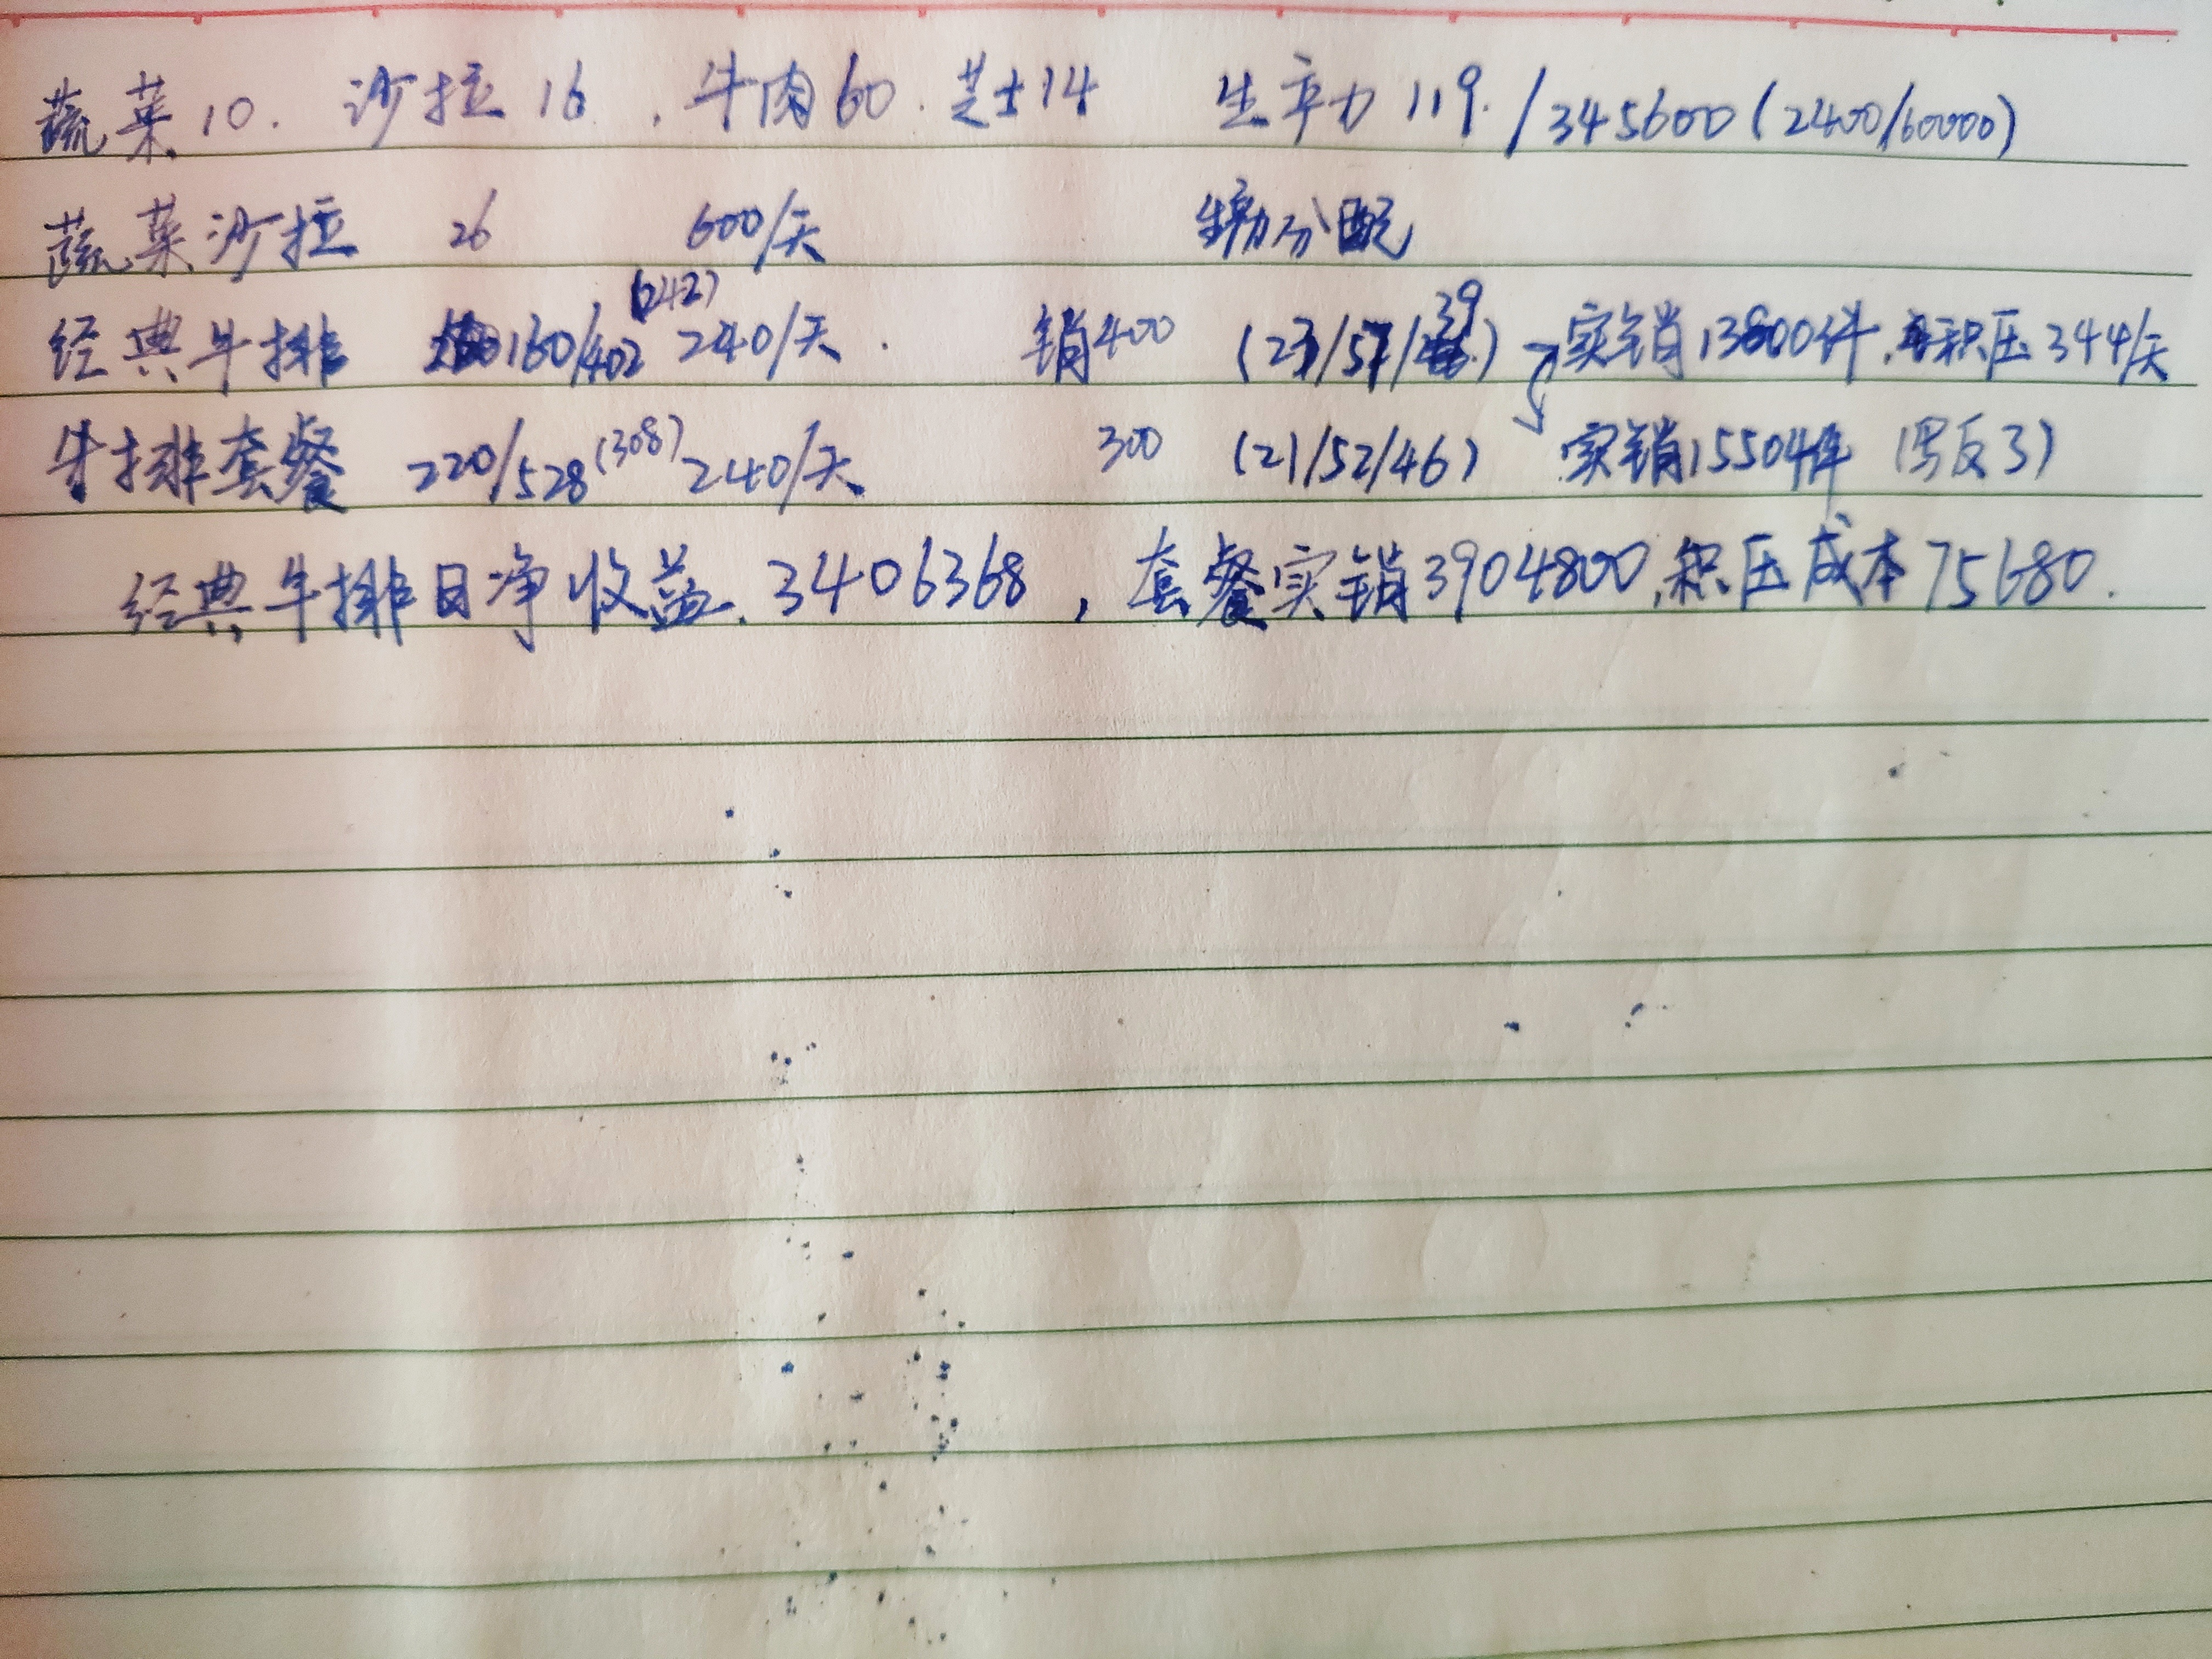 蔬菜10. 沙拉16 . 牛肉60 . 芝士14 生产力119. / 345600 (2400/60000)
蔬菜沙拉 26 600/天 生产力分配
经典牛排 160/402 (242) 240/天 . 销400 (23/57/39) 实销13800件, 积压344/天
牛排套餐 220/528 (308) 240/天 300 (21/52/46) 实销15504件 (写反了)
经典牛排日净收益. 3406368 , 套餐实销3904800,积压成本75680.